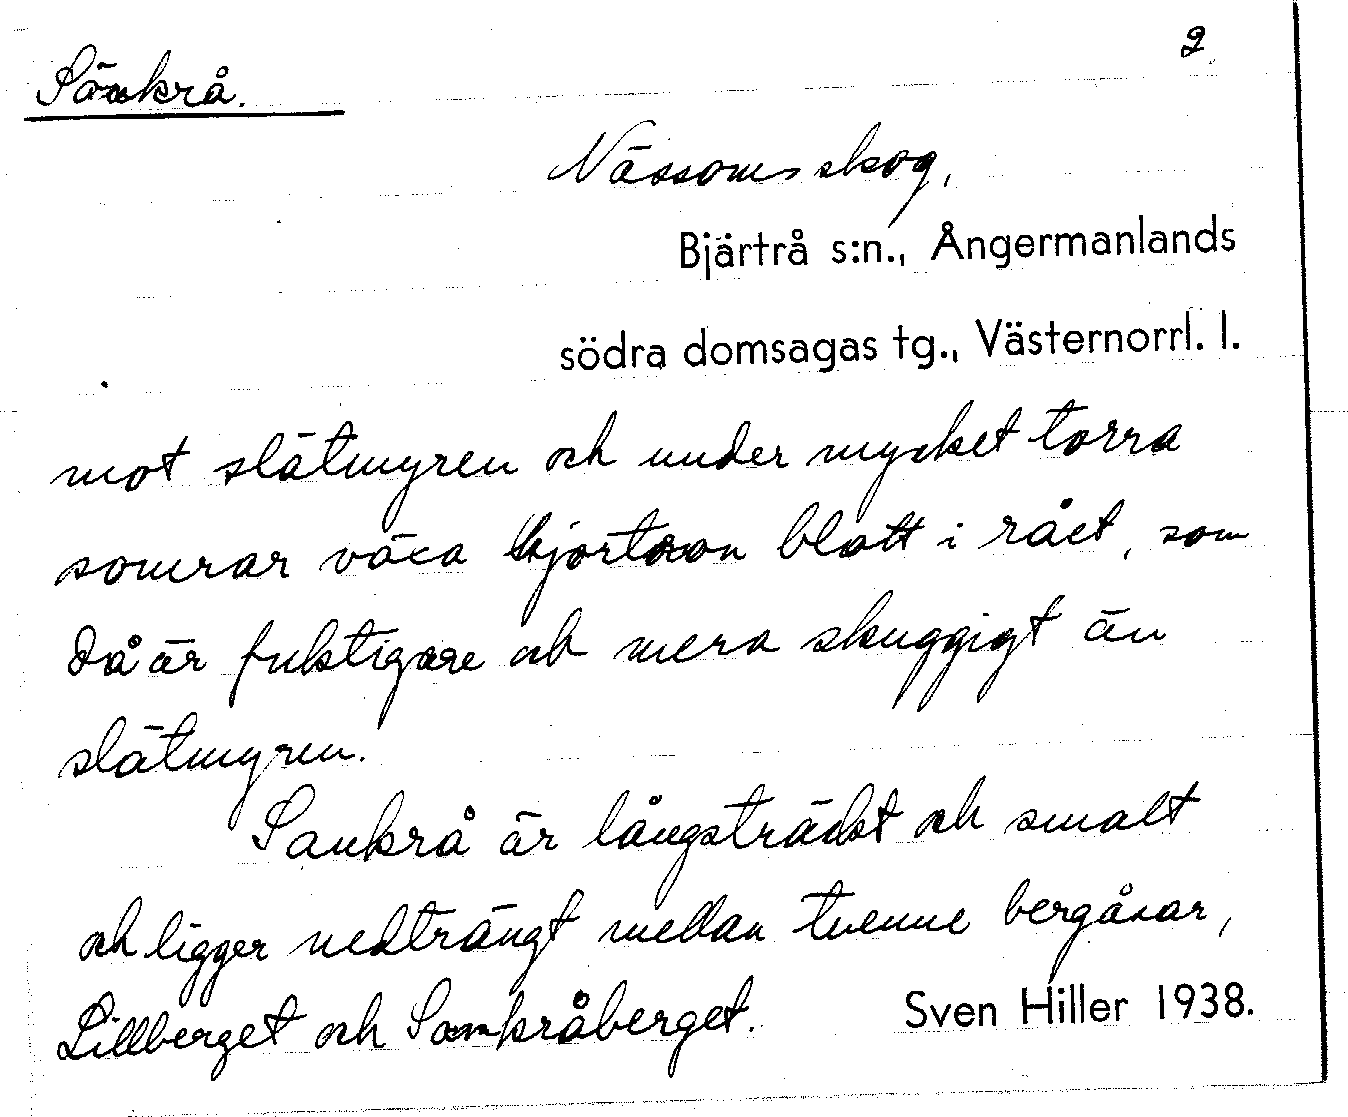 2
Sänkrå.
Nässoms skog,
Bjärtrå s:n., Ångermanlands
södra domsagas tg., Västernorrl. l.
mot slåtmyren och under mycket torra
somrar växa hjortron blott i rået, som
då är fuktigare och mera skuggigt än
slåtmyren.
Sankrå är långsträckt och smalt
och ligger nedträngt mellan tvenne bergåsar,
Lillberget och Sankråberget.
Sven Hiller 1938.